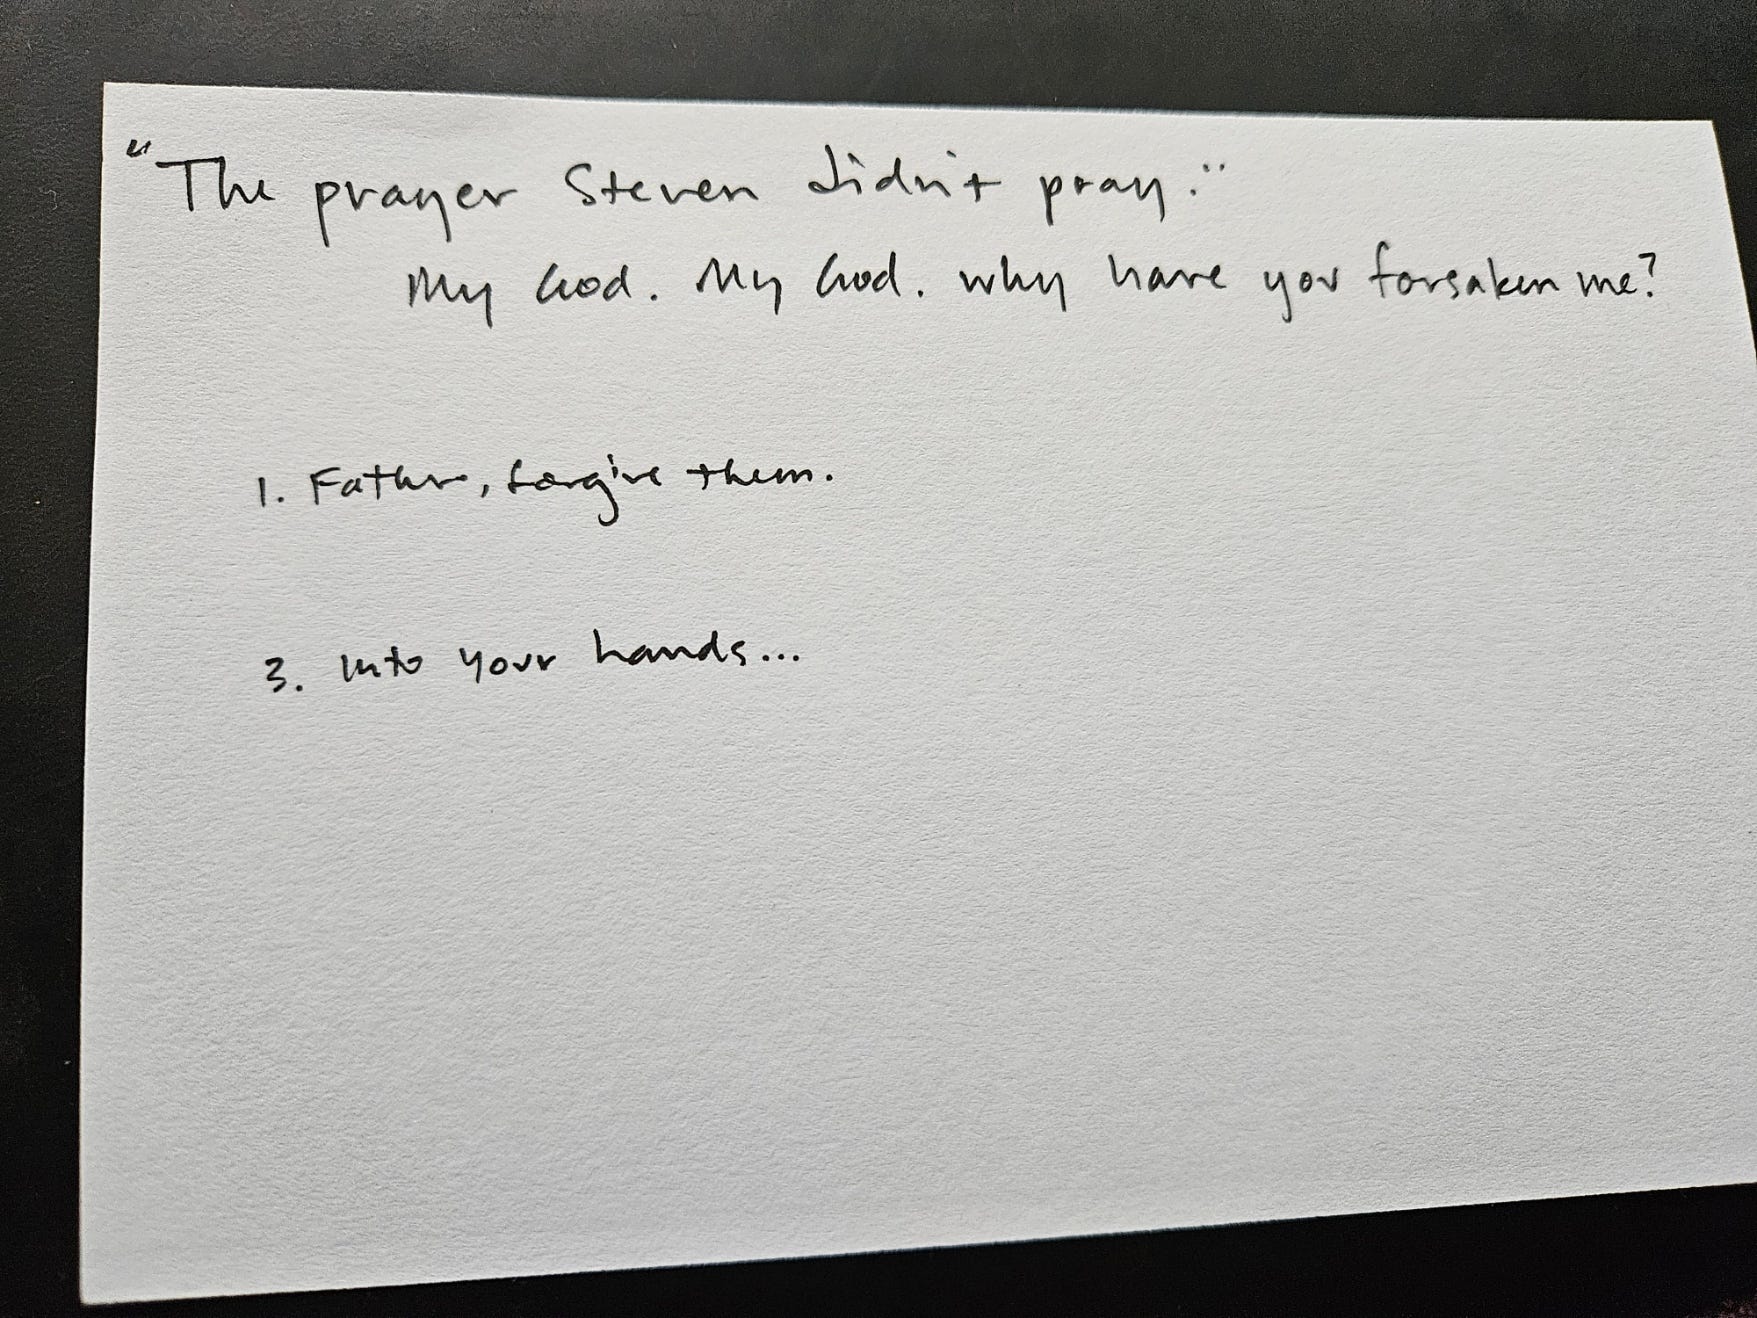 "The prayer Steven didn't pray."
My God. My God. why have you forsaken me?
1. Father, forgive them.
3. Into your hands...